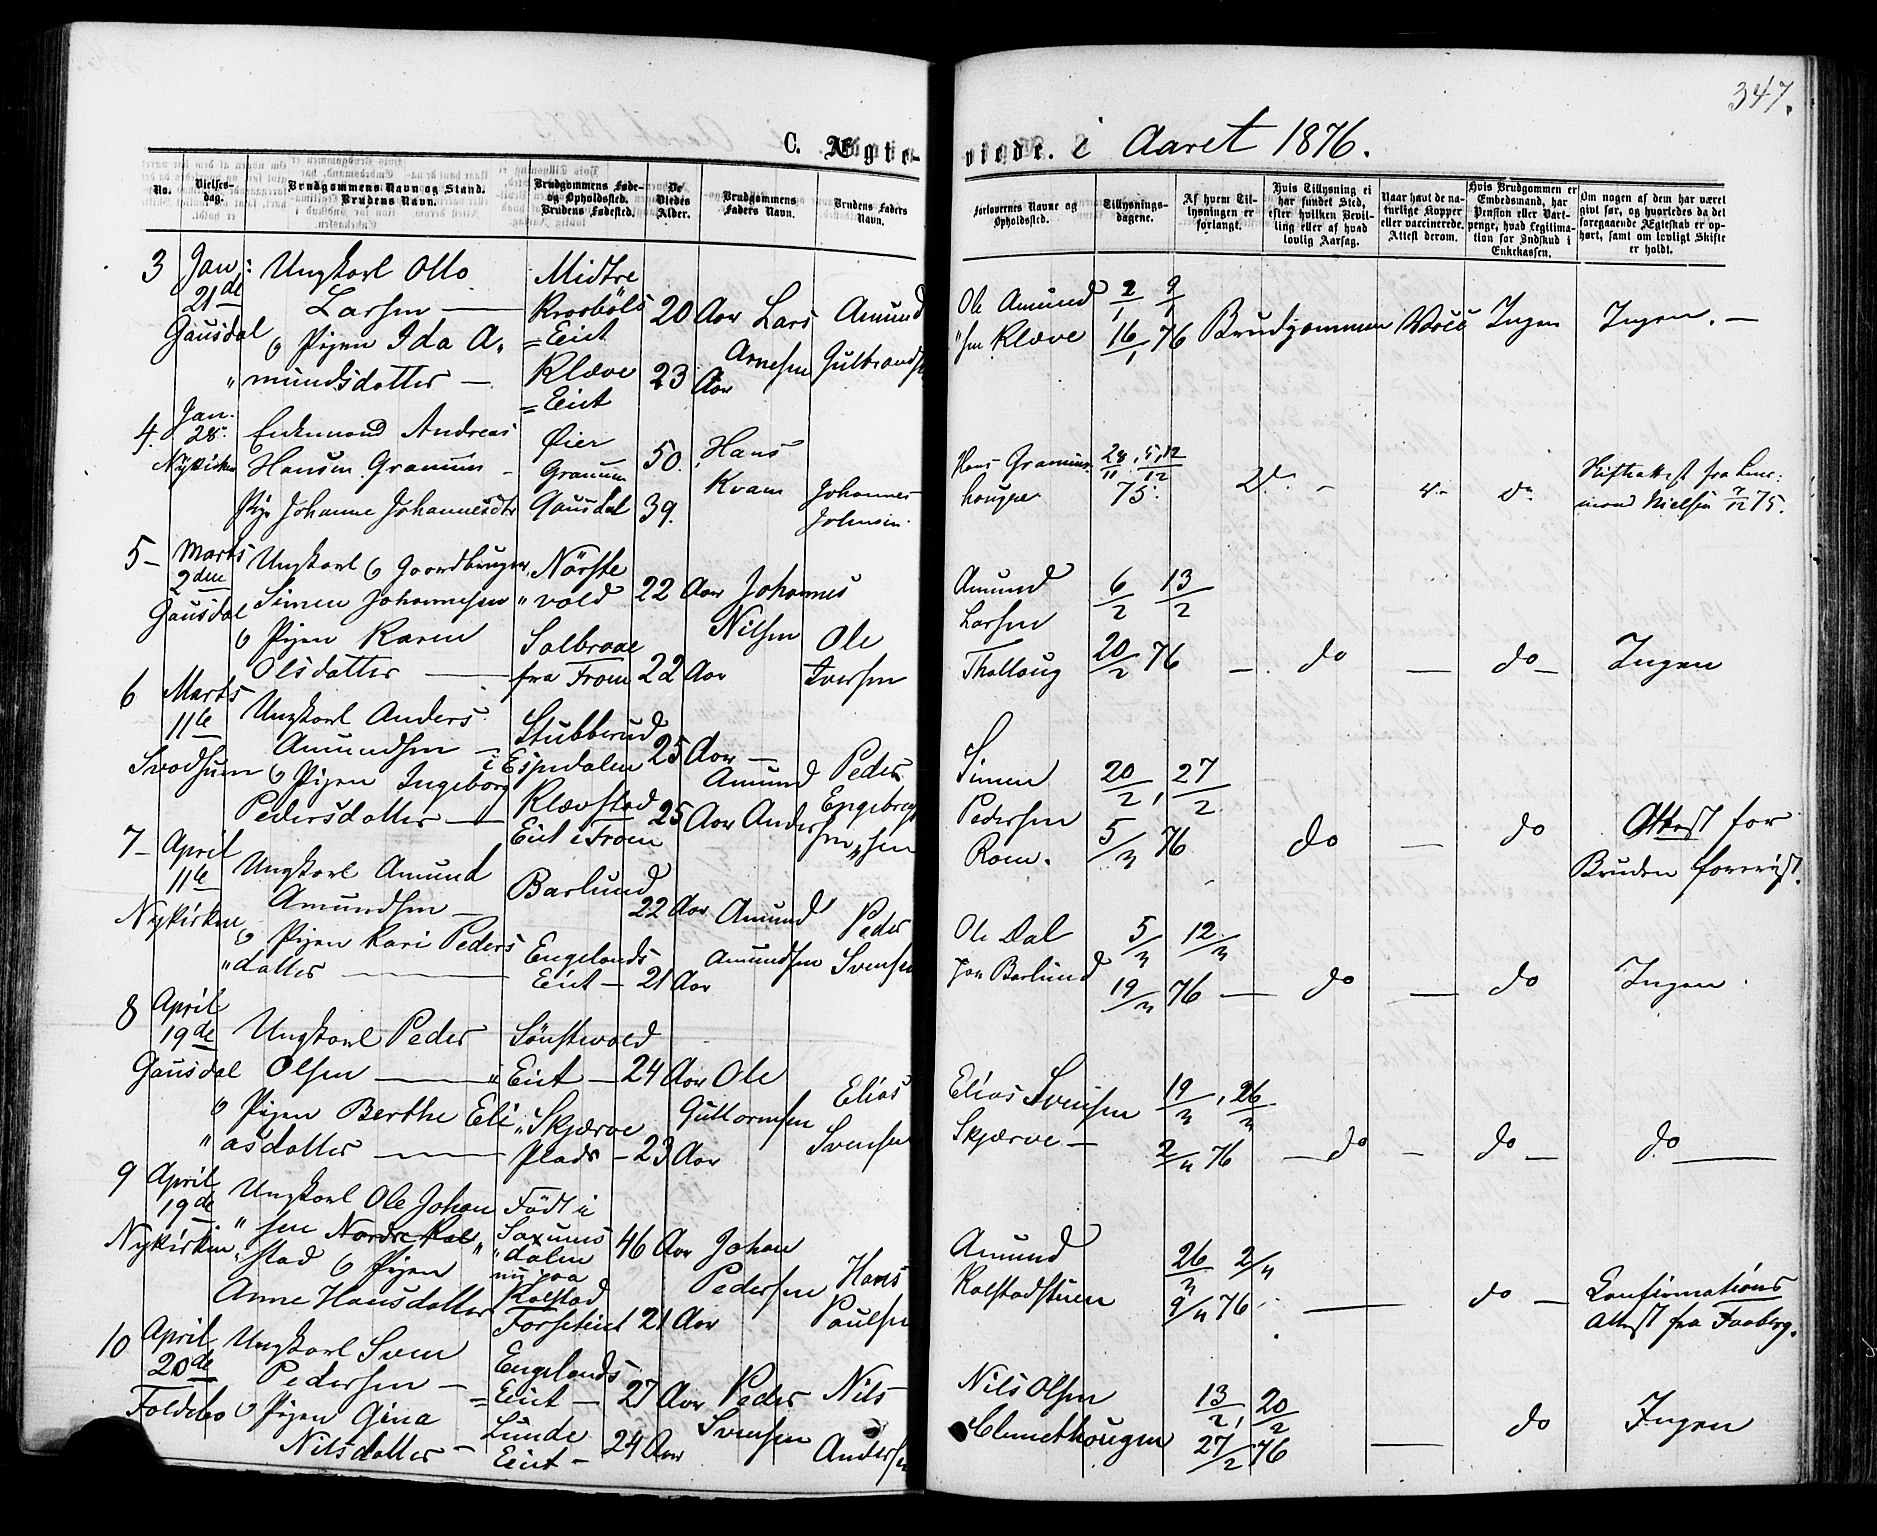 347.
C. Ægte-
viede. i Aaret 1876.
No.
Vielses-
dag.
Brudgommens Navn og Stand.
Brudens Navn.
Brudgommens Føde-
og Opholdssted.
Brudens Fødested.
De
Viedes
Alder.
Brudgommens
Faders Navn.
Brudens Faders
Navn.
Forlovernes Navne og
Opholdssted.
Tillysnings-
dagene.
Af hvem Til-
lysningen er
forlangt.
Hvis Tillysning ei
har fundet Sted,
efter hvilken Bevil-
ling eller af hvad
lovlig Aarsag.
Naar havt de na-
turlige Kopper
eller vaccinerede.
Attest derom.
Hvis Brudgommen er
Embedsmand, har
Pension eller Vart-
penge, hvad Legitima-
tion for Indskud i
Enkekassen.
Om nogen af dem har været
givt før, og hvorledes da det
foregaaende Ægteskab er op-
hørt, samt om lovligt Skifte
er holdt.
3
Jan:
21de
Gausdal
Ungkarl Otto
Larsen —
o Pigen Ida A„
„mundsdatter —
Midtre
Kroböls
=Eiet
Klæve
=Eiet
20 Aar
23 Aar
Lars
Arnesen
Amund
Gulbrands
Ole Amund
„sen Klæve
2/1 9/1
16/1 76
Brudgommen
Ingen
Ingen. —
4.
Jan.
28.
Nykirken
Enkemand Andreas
Hansen Granum –
Pige Johanne Johannesdtr
Øier
Granum
Gausdal
50.
39.
Hans
Kvam
Johannes
Johnsen.
Hans Granum-
haugen
28/11, 5,12/12
75.
Do. –
do
Skifteattest fra Lens-
mand Nielsen 7/12 75.
5 –
Marts
2den
Gausdal
Ungkarl o Gaardbruger
Simen Johannesen
o Pigen Karen
Olsdatter —
Nörste
„vold
Solbraae
fra From
22 Aar
22 Aar
Johannes
Nilsen
Ole
Iversen
Amund
Larsen
Thallaug
6/2 13/2
20/2 76
— do
— do —
Ingen
6
Marts
11te
Svadsum
Ungkarl Anders
Amundsen —
o Pigen Ingeborg
Pedersdatter —
Stubberud
i Espedalen
Klævstad
Eiet i From
25 Aar —
25 Aar
Amund
Andersen
Peder
Engebregt
„sen
Simen
Pedersen
Rom.
20/2, 27/2
5/3 76
do
— do
Attest for
Bruden foreviist.
7 –
April
11te
Nykirken
Ungkarl Amund
Amundsen —
o Pigen Kari Peders
„datter —
Barlund
Engelands
Eiet –
22 Aar
21 Aar
Amund
Amundsen
Peder
Svensen
Ole Dal
Jon Barlund
5/3 12/3
19/3 76
— do
— do
Ingen.
8
April
19de
Gausdal
Ungkarl Peder
Olsen —
o Pigen Berthe Eli
„asdatter —
Sönstevold
„Eiet –
„Skjærve
Plads –
24 Aar
23 Aar
Ole
Guttormsen
Elias
Svensen
Elias Svensen
Skjærve —
19/3, 26/3
2/4 76
— do
– do —
do —
9
April
19de
Nykirken
Ungkarl Ole Johan
„sen Nordre Kal„
„stad o Pigen
Anne Hansdatter
Födt i
Saxums
„dalen
nu paa
Kalstad
Forseteiet
46 Aar
21 Aar
Johan
Pedersen
Hans
Paulsen
Amund
Kalstadstuen
26/3 2/4
9/4 76
—
do —
Confirmations
Attest fra Faaberg.
10
April
20de
Foldebo
Ungkarl Sven
Pedersen –
o Pigen Gina
Nilsdatter –
Engelands
=Eiet –
Lunde
Eiet –
27 Aar
24 Aar
Peder
Svensen
Nils
Anders
Nils Olsen
13/2, 20/2
27/2 76
—
do
Ingen